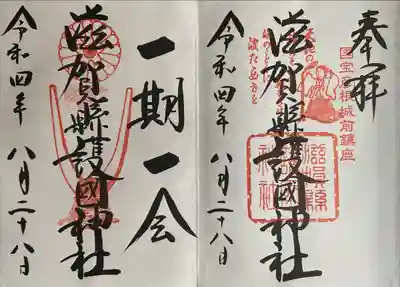 奉拝
国宝彦根城前鎮座
滋賀縣護國神社
滋賀縣護國神社
令和四年 八月二十八日
一期一会
滋賀縣護國神社
令和四年 八月二十八日